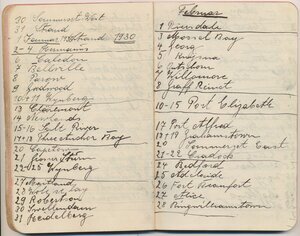 30 Sommerset West
31 Strand
1 Januar Strand 1930
2-4 Hermanus
6 Caledon
7 Bellville
8 Parow
9 Goodwood
10+11 Wynberg
13 Claremont
14 Newlands
15-16 Salt River
17+18 Fleischer Bay
20 Capetown
21
22+25 Wynberg
27 Maitland
28
29 Robertson
30 Swellendam
31 Heidelberg
Februar
1 Riversdale
3 Mossel Bay
4 Georg
5 Knysna
6 Oudtshorn
7 Willowmore
8 Graff Reinet
10-15 Port Elizabeth
17 Port Alfred
18+19 Grahamstown
20 Sommerset East
21-22 Cradock
24 Bedford
25 Adelaide
26 Fort Beaufort
27 Alice
28 Kingwilliamstown